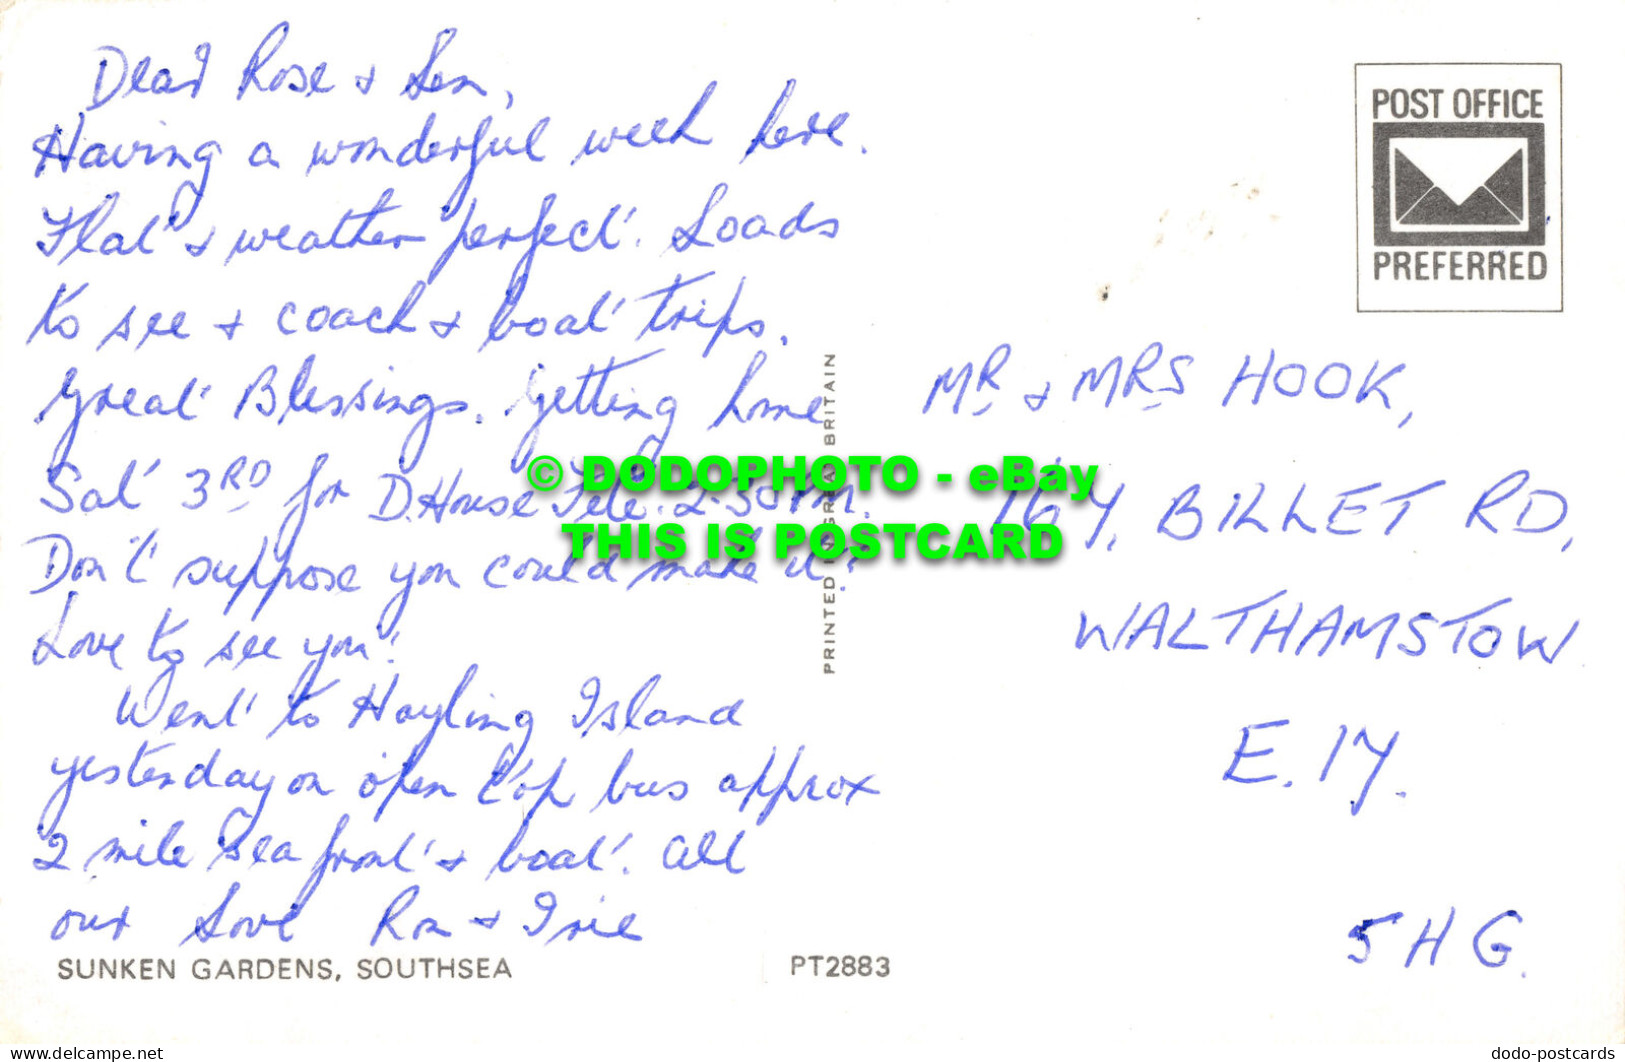 Dear Rose & Len,
Having a wonderful week here.
Flat & weather perfect. Loads
to see & coach & boat trips.
Great Blessings. Getting home
Sat 3RD for D.House Fete. 2-30 PM.
Don't suppose you could make it?
Love to see you!
Went to Hayling Island
yesterday on open top bus approx
2 mile sea front & boat. All
our Love Ron & Irie
SUNKEN GARDENS, SOUTHSEA
PT2883
PRINTED IN GREAT BRITAIN
POST OFFICE
PREFERRED
MR & MRS HOOK,
167, BILLET RD,
WALTHAMSTOW
E.17.
5HG.
© DODOPHOTO - eBay
THIS IS POSTCARD
www.delcampe.net
dodo-postcards